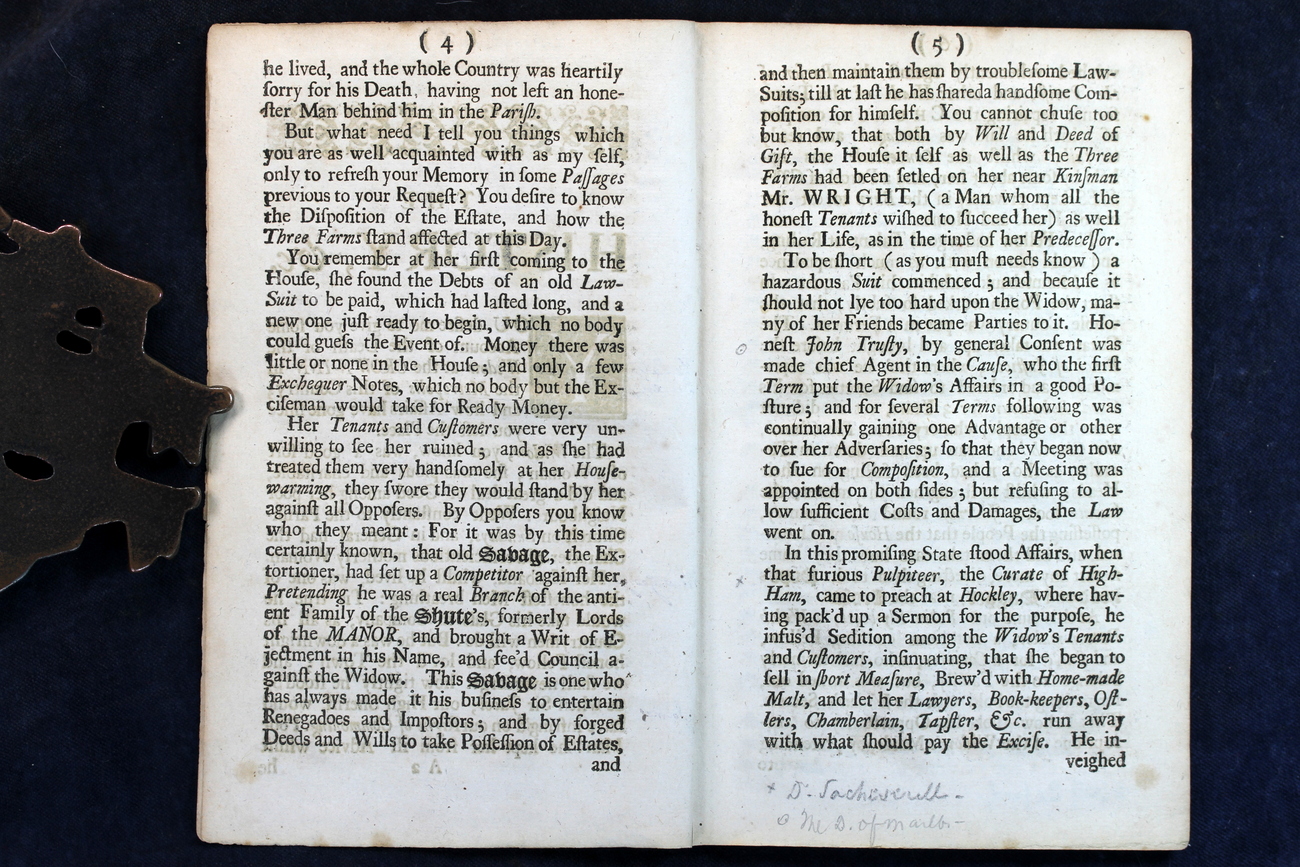 ( 4 )
he lived, and the whole Country was heartily
ſorry for his Death, having not left an hone-
ſter Man behind him in the Pariſh.
But what need I tell you things which
you are as well acquainted with as my ſelf,
only to refreſh your Memory in ſome Paſſages
previous to your Requeſt? You deſire to know
the Diſpoſition of the Eſtate, and how the
Three Farms ſtand affected at this Day.
You remember at her firſt coming to the
Houſe, ſhe found the Debts of an old Law-
Suit to be paid, which had laſted long, and a
new one juſt ready to begin, which no body
could gueſs the Event of. Money there was
little or none in the Houſe; and only a few
Exchequer Notes, which no body but the Ex-
ciſeman would take for Ready Money.
Her Tenants and Cuſtomers were very un-
willing to ſee her ruined; and as ſhe had
treated them very handſomely at her Houſe-
warming, they ſwore they would ſtand by her
againſt all Oppoſers. By Oppoſers you know
who they meant: For it was by this time
certainly known, that old Savage, the Ex-
tortioner, had ſet up a Competitor againſt her,
Pretending he was a real Branch of the anti-
ent Family of the Shute's, formerly Lords
of the MANOR, and brought a Writ of E-
jectment in his Name, and fee'd Council a-
gainſt the Widow. This Savage is one who
has always made it his buſineſs to entertain
Renegadoes and Impoſtors; and by forged
Deeds and Wills to take Poſſeſſion of Eſtates,
and
( 5 )
and then maintain them by troubleſome Law-
Suits; till at laſt he has ſhareda handſome Com-
poſition for himſelf. You cannot chuſe too
but know, that both by Will and Deed of
Gift, the Houſe it ſelf as well as the Three
Farms had been ſetled on her near Kinſman
Mr. WRIGHT, (a Man whom all the
honeſt Tenants wiſhed to ſucceed her) as well
in her Life, as in the time of her Predeceſſor.
To be ſhort (as you muſt needs know) a
hazardous Suit commenced; and becauſe it
ſhould not lye too hard upon the Widow, ma-
ny of her Friends became Parties to it. Ho-
neſt John Truſty, by general Conſent was
made chief Agent in the Cauſe, who the firſt
Term put the Widow's Affairs in a good Po-
ſture; and for ſeveral Terms following was
continually gaining one Advantage or other
over her Adverſaries; ſo that they began now
to ſue for Compoſition, and a Meeting was
appointed on both ſides; but refuſing to al-
low ſufficient Coſts and Damages, the Law
went on.
In this promiſing State ſtood Affairs, when
that furious Pulpiteer, the Curate of High-
Ham, came to preach at Hockley, where hav-
ing pack'd up a Sermon for the purpoſe, he
infus'd Sedition among the Widow's Tenants
and Cuſtomers, inſinuating, that ſhe began to
ſell in ſhort Meaſure, Brew'd with Home-made
Malt, and let her Lawyers, Book-keepers, Oſt-
lers, Chamberlain, Tapſter, &c. run away
with what ſhould pay the Exciſe. He in-
veighed
+ Dr. Sacheverell -
o The D. of Marlbo-